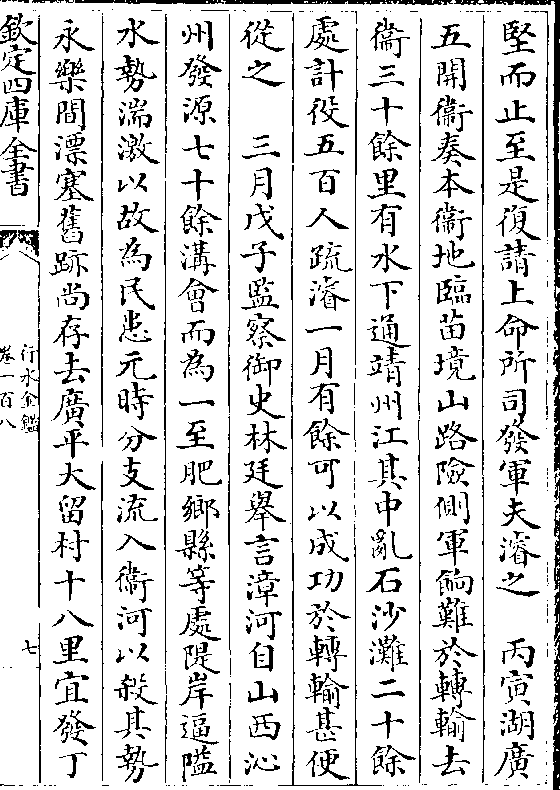 堅而止至是復請上命所司發軍夫濬之　丙寅湖廣
五開衞奏本衞地臨苗境山路險側軍餉難於轉輸去
衞三十餘里有水下通靖州江其中亂石沙灘二十餘
處計役五百人疏濬一月有餘可以成功於轉輸甚便
從之　三月戊子監察御史林廷舉言漳河自山西沁
州發源七十餘溝會而為一至肥鄉縣等處隄岸逼隘
水勢湍激以故為民患元時分支流入衞河以殺其勢
永樂間漂塞舊跡尚存去廣平大留村十八里宜發丁
欽定四庫全書
行水金鑑
卷一百八
七